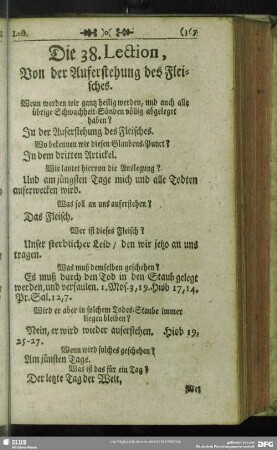 Lect. )o( (367
Die 38. Lection,
Von der Auferstehung des Flei-
sches.
Wenn werden wir gantz heilig werden, und auch alle
übrige Schwachheit-Sünden völlig abgeleget
haben?
In der Auferstehung des Fleisches.
Wo bekennen wir diesen Glaubens-Punct?
In dem dritten Artickel.
Wie lautet hiervon die Auslegung?
Und am jüngsten Tage mich und alle Todten
auferwecken wird.
Was soll an uns auferstehen?
Das Fleisch.
Wer ist dieses Fleisch?
Unser sterblicher Leib / den wir jetzo an uns
tragen.
Was muß demselben geschehen?
Es muß durch den Tod in den Staub gelegt
werden, und verfaulen. 1. Mos. 3, 19. Hiob 17, 14.
Pr. Sal. 12, 7.
Wird er aber in solchem Todes-Staube immer
liegen bleiben?
Nein, er wird wieder auferstehen. Hiob 19,
25-27.
Wenn wird solches geschehen?
Am jünsten Tage.
Was ist das für ein Tag?
Der letzte Tag der Welt,
SLUB